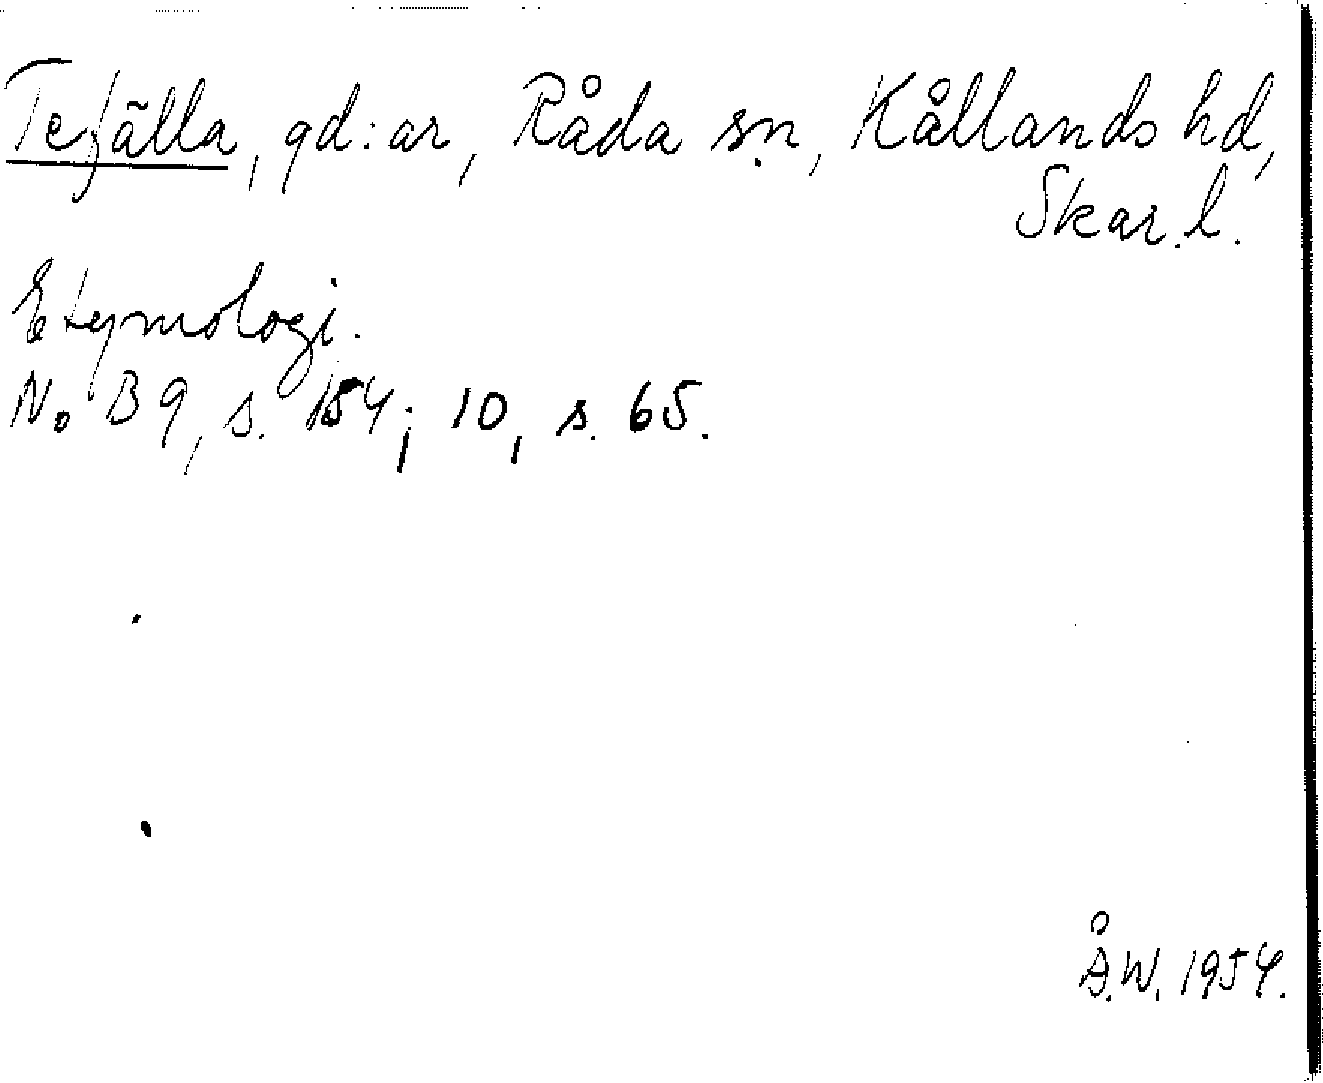 Tefälla, gd:ar, Råda sn, Kållands hd,
Skar. l.
Etymologi.
NoB 9, s. 154; 10, s. 65.
Å.W. 1954.